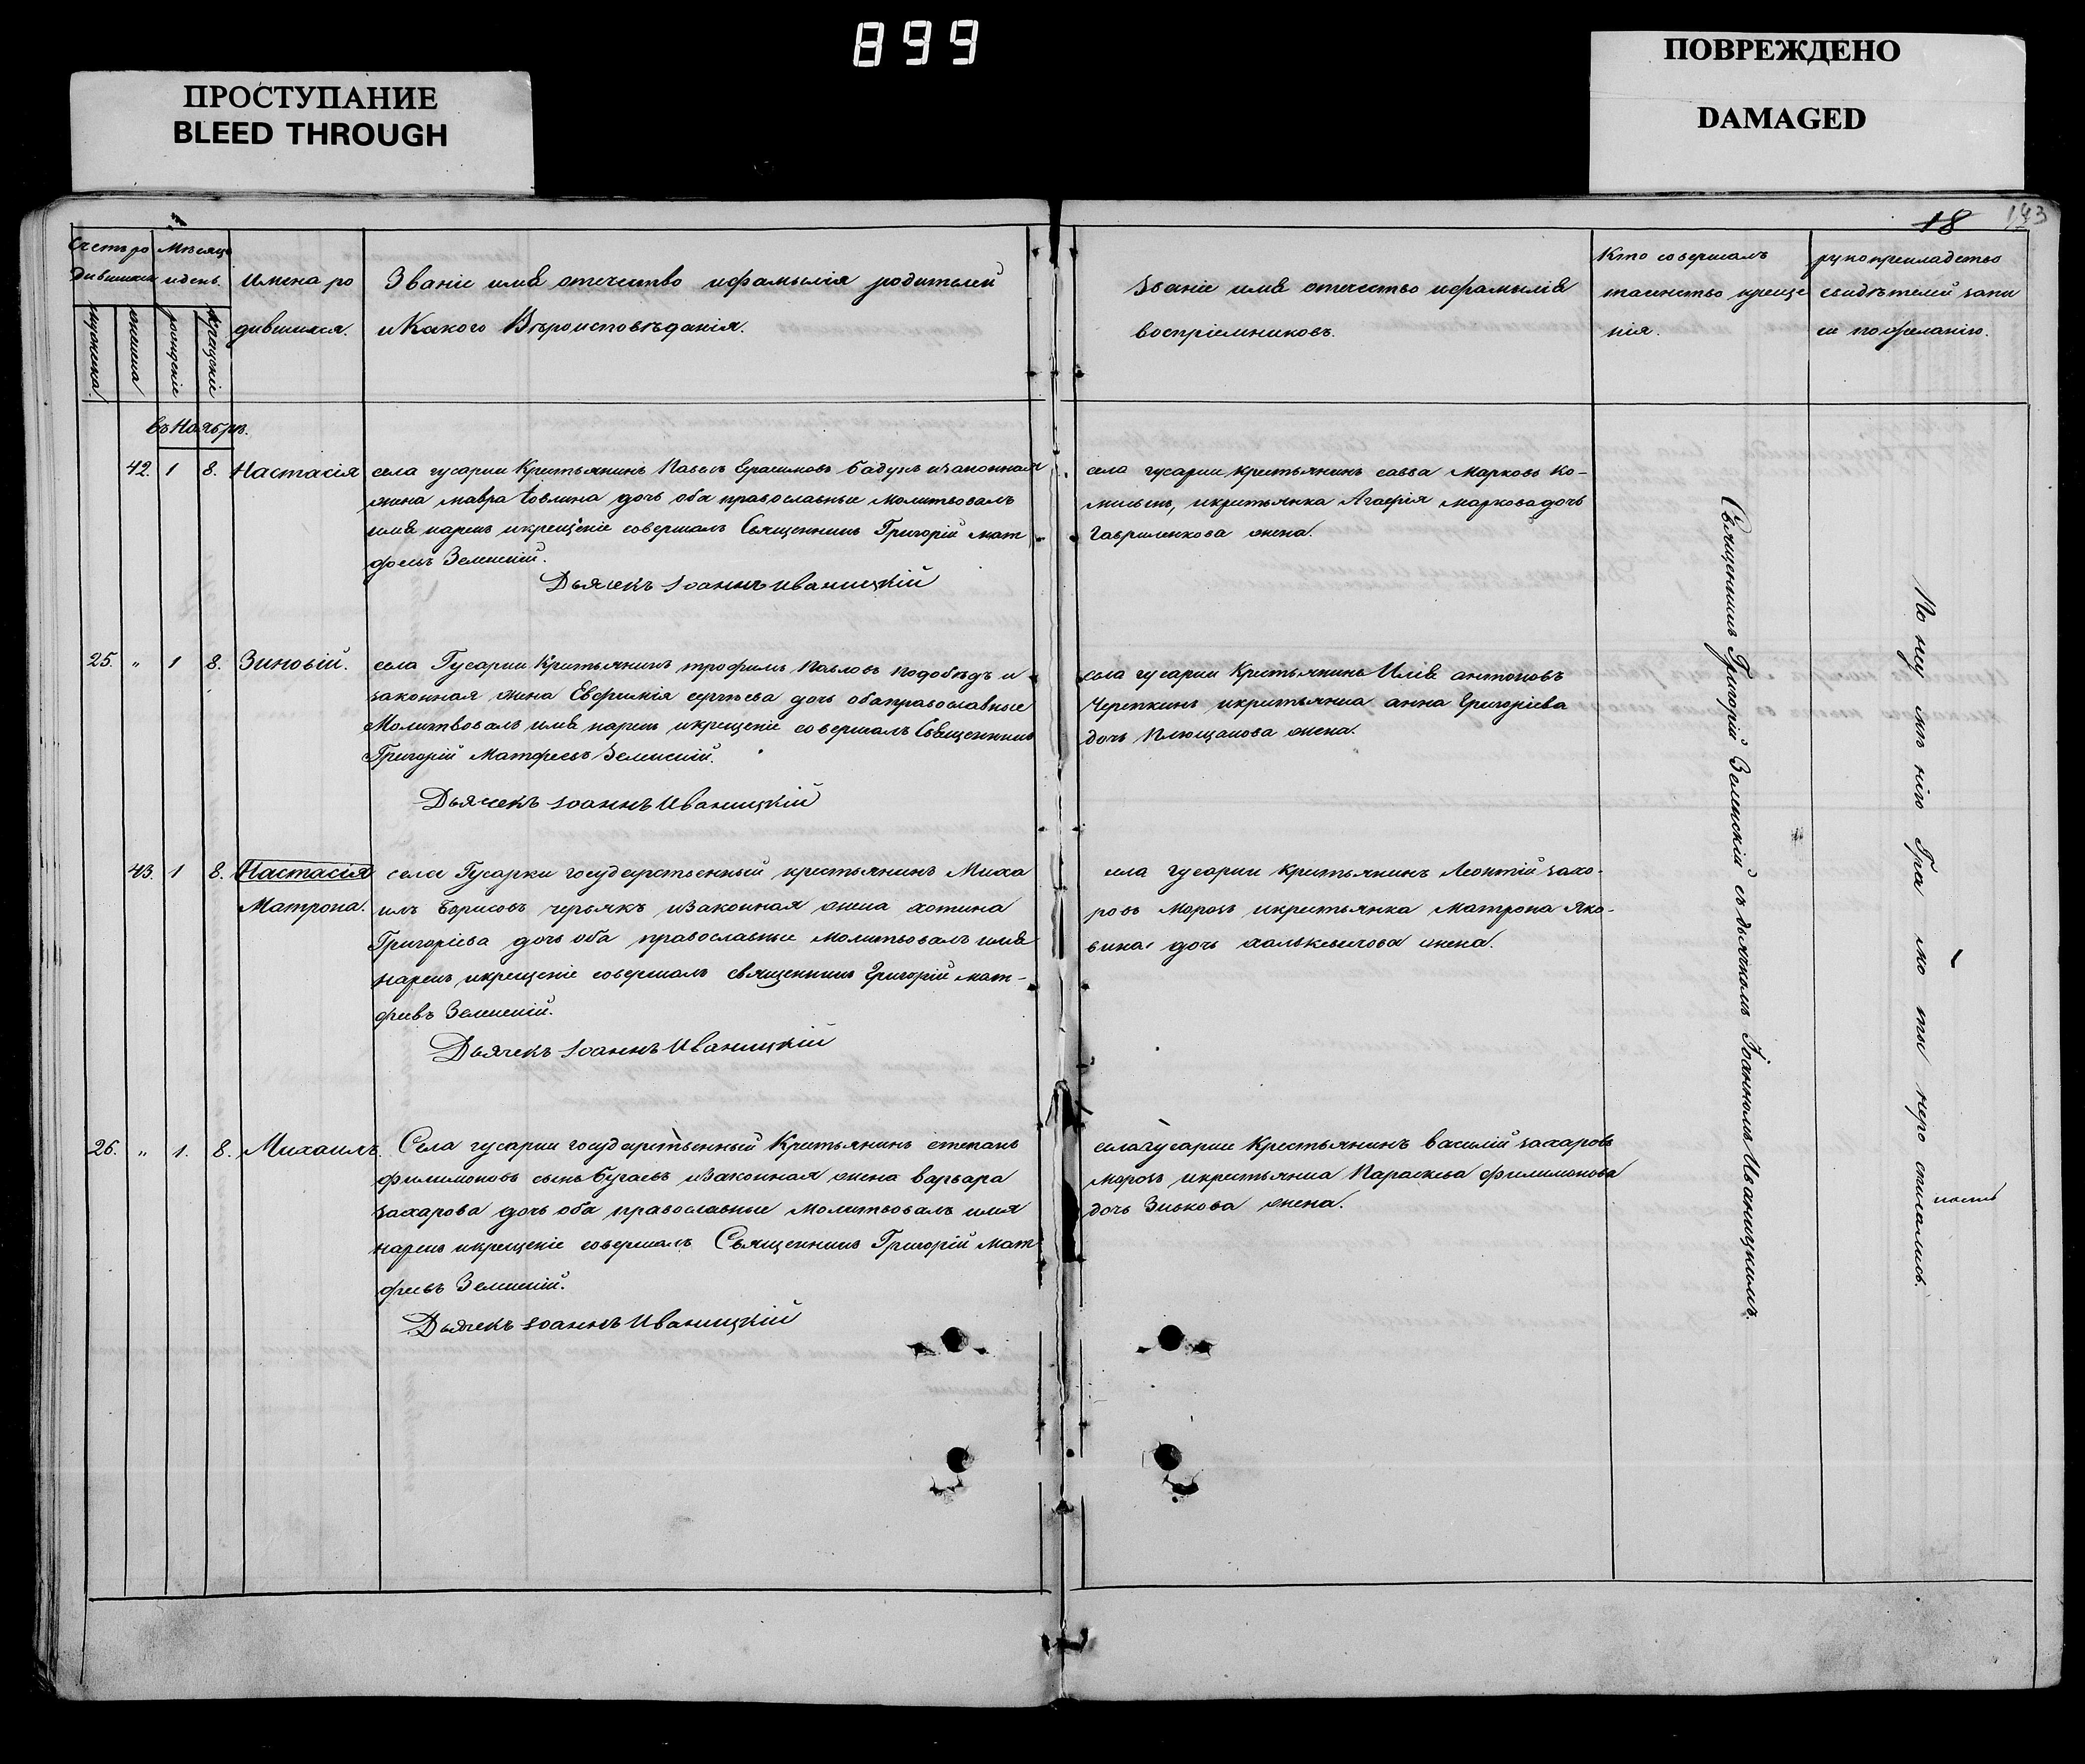 899
ПРОСТУПАНИЕ
BLEED THROUGH
ПОВРЕЖДЕНО
DAMAGED
18
143
Счетъ ро
дившихся
Мѣсяцъ
и день.
мужеска.
женска
рожденіе
крещеніе
Имена ро
дившихся.
Званіе имя отечество и фамилія родителей
и Какого Вѣроисповѣданія.
Званіе имя отечество и фамилія
воспріемниковъ.
Кто совершалъ
таинство креще
нія.
рукоприкладство
свидѣтелей запи
си по желанію.
въ Ноябрѣ.
42. 1 8. Настасія
села гусарки Крестьянинъ Павелъ Герасимовъ бадунъ и законная
жена мавра Іовлина дочь оба православные молитвовалъ
имя нарекъ и крещеніе совершалъ Священникъ Григорій мат
фѣевъ Зеленскій.
Дьячекъ Іоаннъ Иваницкій
села гусарки крестьянинъ савва Марковъ Ко-
, и крестьянка Агафія маркова дочь
Гавриленкова жена.
25. " 1 8. Зиновій.
села Гусарки Крестьянинъ трофимъ Павловъ подобѣдъ и
законная жена Евфимія сергѣева дочь оба православные
Молитвовалъ имя нарекъ и крещеніе совершалъ Священникъ
Григорій Матфеевъ Зеленскій.
Дьячекъ Іоаннъ Иваницкій
села гусарки Крестьянинъ Илія антоновъ
Черепкинъ и крестьянка анна Григоріева
дочь Плющакова жена.
43. 1 8. Настасія
Матрона.
села Гусарки государственный крестьянинъ Миха
илъ Борисовъ червякъ и законная жена хотина
Григоріева дочь оба православные молитвовалъ имя
нарекъ и крещеніе совершалъ священникъ Григорій мат-
феевъ Зеленскій.
Дьячекъ Іоаннъ Иваницкій
села гусарки Крестьянинъ Леонтій заха-
ровъ Морозъ и крестьянка Матрона Яко-
вина дочь жена.
26. " 1. 8. Михаилъ.
Села гусарки государственный Крестьянинъ степанъ
филимоновъ сынъ Бугаевъ и законная жена варвара
захарова дочь оба православные молитвовалъ имя
нарекъ и крещеніе совершалъ Священникъ Григорій Мат
феевъ Зеленскій.
Дьячекъ Іоаннъ Иваницкій
села гусарки Крестьянинъ василій захаровъ
морозъ и крестьянка Параскева филимонова
дочь Зинькова жена.
Священникъ Григорій Зеленскій съ дьячкомъ Іоанномъ Иваницкимъ.
По неу мѣ нію Гра мо ты неро списались.